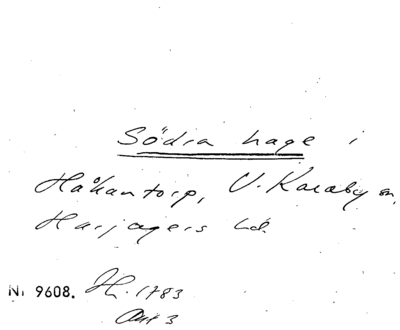 Södra hage i
Håkantorp, V. Karaby sn,
Harjagers hd.
Nr 9608. Ih. 1783
Akt 3